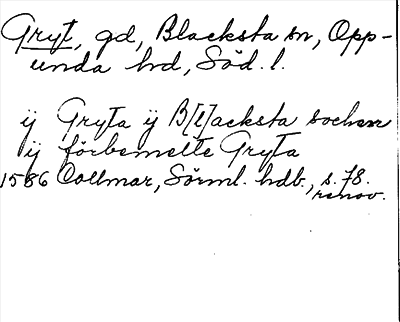 Gryt, gd, Blacksta sn, Opp-
unda hd, Söd. l.
ij Gryta ij B[l]acksta sochen
ij förbemelte Gryta
1586 Collmar, Sörml. hdb., s. 78.
renov.